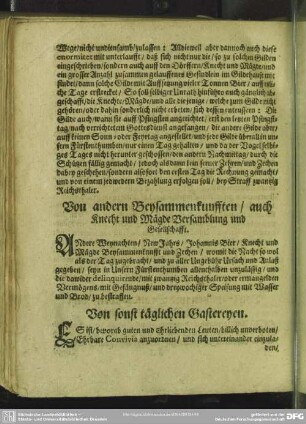 Wege/nicht umbsonst/zulassen: Alldieweil aber dannoch auch diese
enormitet mit unterlaufft/ daß sich nicht nur die/ so zu solchen Gilden
eingeschrieben/ sondern auch auff den Dörffern/ Knecht und Mägde/ und
ein grosser Anzahl zusammen gelauffenes Gesindlein im Gildehause mit
findet/ dann solche Gilde mit Aufflegung vieler Tonnen Bier/ auff etli-
che Tage erstrecket/ So soll solcher Unrath hinführo auch gäntzlich ab-
geschafft/ die Knechte/ Mägde/ und alle diejenige/ welcher zum Gilde nicht
gehören/ oder dahin sonderlich nicht erbeten/ sich dessen enteussern: Die
Gilde auch/ wann sie auff Pfingsten angerichtet/ erst den letzten Pfingst-
tag/ nach verrichtetem Gottesdienst angefangen/ die andere Gilde aber/
auff keinen Sonn- oder Feyertag angestellet/ und jene Gilde
Fürstenthumben/ nur einen Tag gehalten/ und da der Vogel selbi-
ges Tages nicht herunter geschossen/ den andern Nachmittag/ durch die
Schützen fällig gemacht/ jedoch alsdann kein ferner Zehren und Zechen
dabey geschehen/ sondern also fort den ersten Tag die Rechnung gemacht/
und von einem jedwedern Bezahlung erfolgen soll/ bey Straff zwantzig
Reichsthaler.
Von andern Beysammenkunfften/ auch
Knecht und Mägde Versamblung und
Gesellschafft.
Andere Weynachten/ New Jahrs/ Johannis Bier/ Knecht und
Mägde Beysammenkunfft und Zechen/ womit die Nacht so wol
als der Tag zugebracht/ und zu aller Ungebühr Ursach und Anlaß
gegeben/ seyn in Unsern Fürstenthumben allenthalben unzulässig/ und
die dawider delinquirende/ mit zwantzig Reichsthaler/ oder ermangelnden
Vermögens/ mit Gefängnuß/ und dreywochiger Speisung mit Wasser
und Brod/ zu bestraffen.
Von sonst täglichen Gastereyen.
Es ist/ bevorab guten und ehrliebenden Leuten/ billich unverboten/
Ehrbare Convivia anzuordnen/ und sich untereinander einzula-
den/